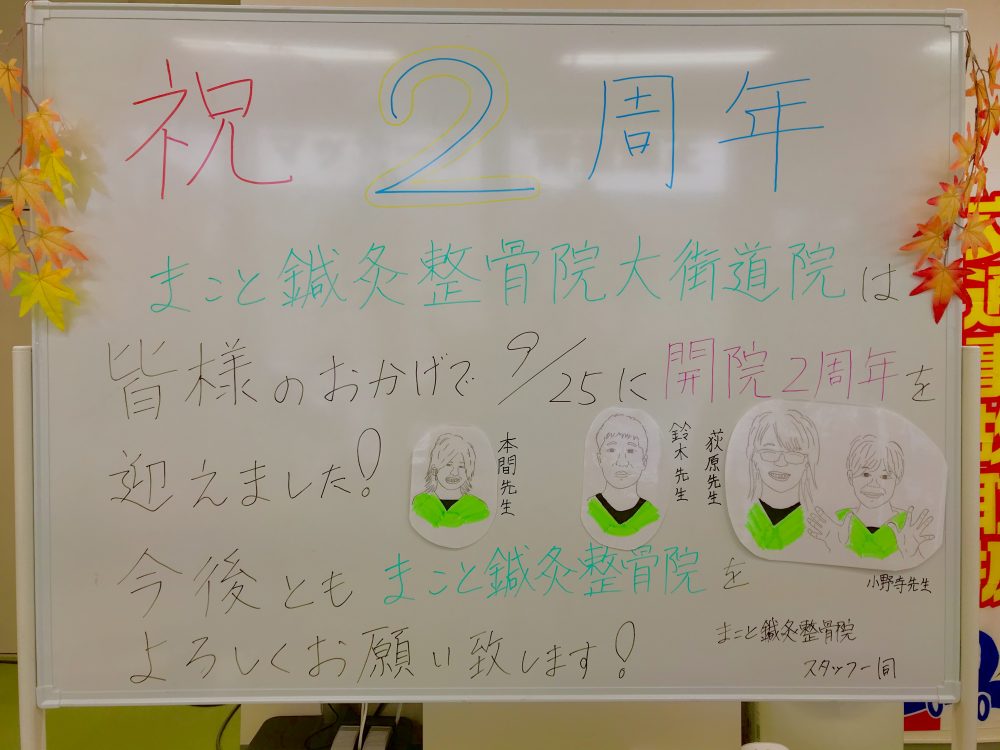 祝 2 周年
まこと鍼灸整骨院大街道院は
皆様のおかげで 9/25に 開院2周年を
迎えました!
本間先生
鈴木先生
荻原先生
小野寺先生
今後とも まこと鍼灸整骨院を
よろしくお願い致します!
まこと鍼灸整骨院
スタッフ一同